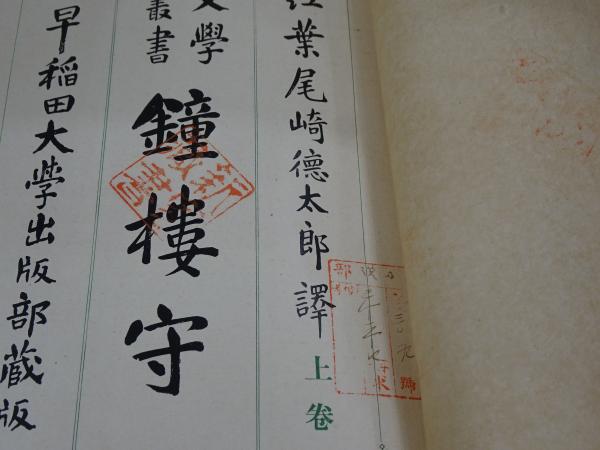 紅葉尾崎德太郎譯
上卷
文學
叢書
鐘樓守
早稲田大学出版部蔵版